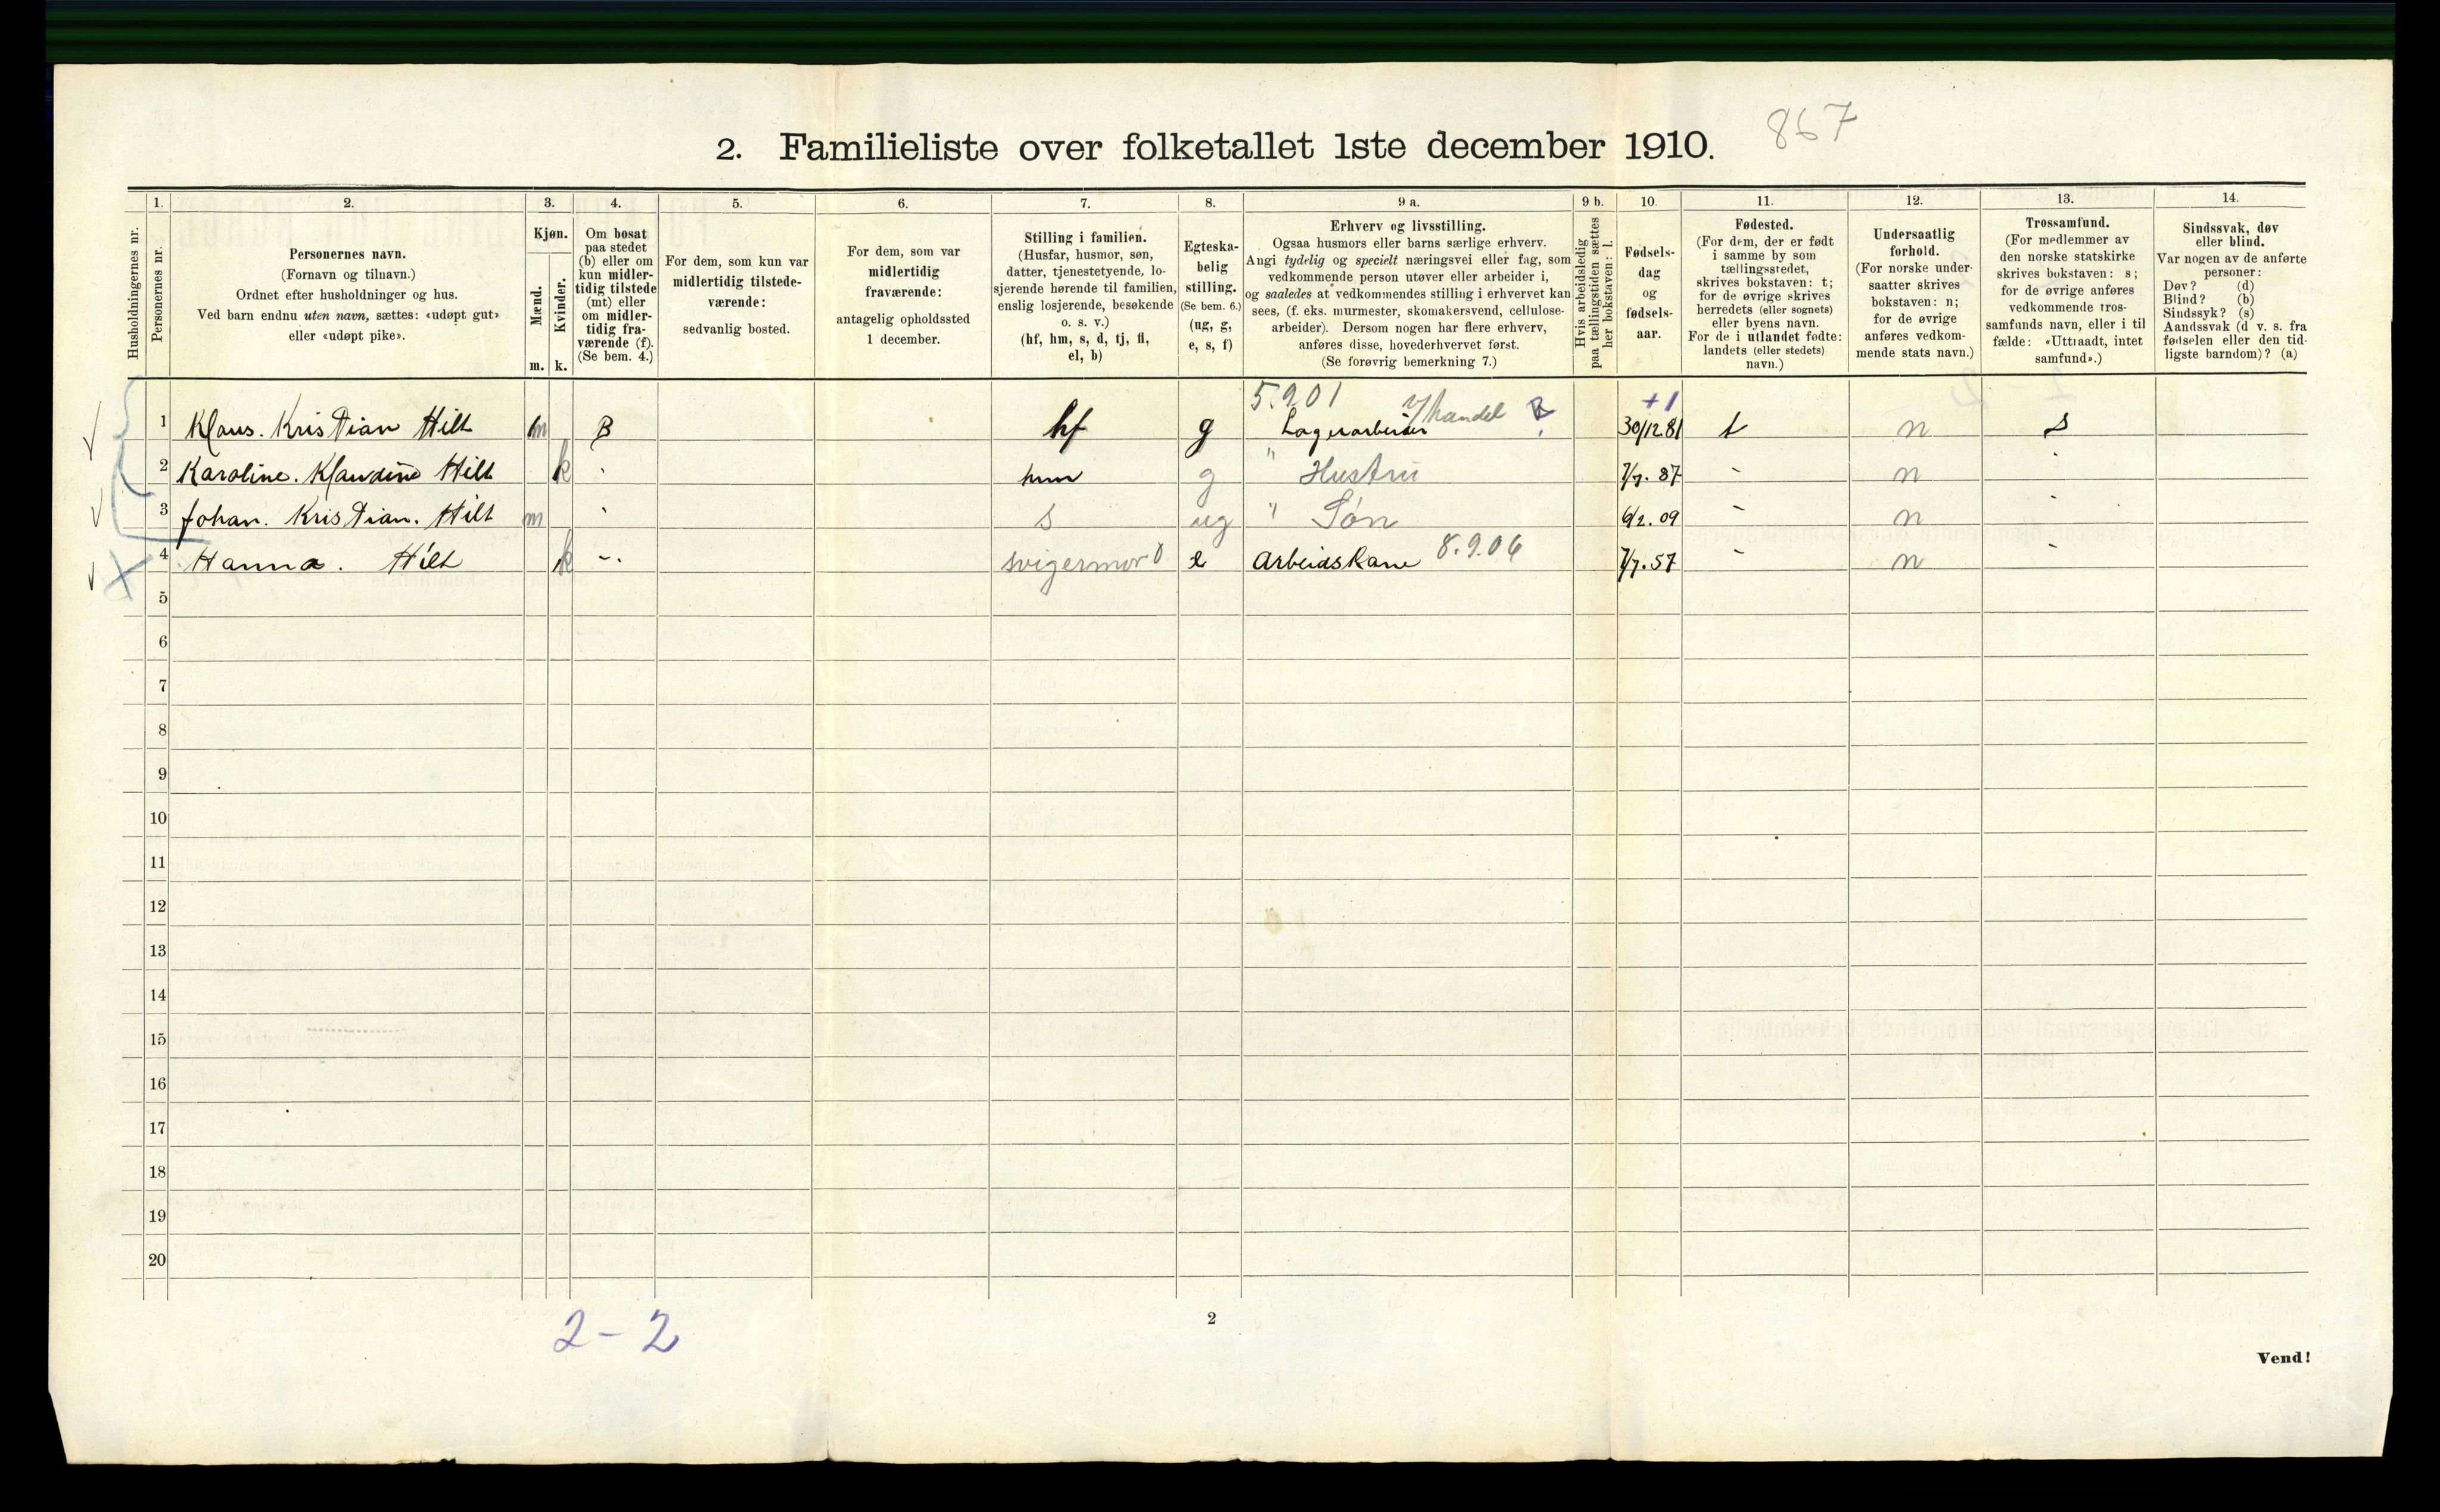 867
2. Familieliste over folketallet 1ste december 1910.
Husholdningernes nr.
1.
Personernes nr.
2.
Personernes navn.
(Fornavn og tilnavn.)
Ordnet efter husholdninger og hus.
Ved barn endnu uten navn, sættes: «udøpt gut»
eller «udøpt pike».
3.
Kjøn.
Mænd.
Kvinder.
m. k.
4.
Om bosat
paa stedet
(b) eller om
kun midler-
tidig tilstede
(mt) eller
om midler-
tidig fra-
værende (f).
(Se bem. 4.)
5.
For dem, som kun var
midlertidig tilstede-
værende:
sedvanlig bosted.
6.
For dem, som var
midlertidig
fraværende:
antagelig opholdssted
1 december.
7.
Stilling i familien.
(Husfar, husmor, søn,
datter, tjenestetyende, lo-
sjerende hørende til familien,
enslig losjerende, besøkende
o. s. v.)
(hf, hm, s, d, tj, fl,
el, b)
8.
Egteska-
belig
stilling.
(Se bem. 6.)
(ug, g,
e, s, f)
9 a.
Erhverv og livsstilling.
Ogsaa husmors eller barns særlige erhverv.
Angi tydelig og specielt næringsvei eller fag, som
vedkommende person utøver eller arbeider i,
og saaledes at vedkommendes stilling i erhvervet kan
sees, (f. eks. murmester, skomakersvend, cellulose-
arbeider). Dersom nogen har flere erhverv,
anføres disse, hovederhvervet først.
(Se forøvrig bemerkning 7.)
9 b.
Hvis arbeidsledig
paa tællingstiden sættes
her bokstaven: l.
10.
Fødsels-
dag
og
fødsels-
aar.
11.
Fødested.
(For dem, der er født
i samme by som
tællingsstedet,
skrives bokstaven: t;
for de øvrige skrives
herredets (eller sognets)
eller byens navn.
For de i utlandet fødte:
landets (eller stedets)
navn.)
12.
Undersaatlig
forhold.
(For norske under-
saatter skrives
bokstaven: n;
for de øvrige
anføres vedkom-
mende stats navn.)
13.
Trossamfund.
(For medlemmer av
den norske statskirke
skrives bokstaven: s;
for de øvrige anføres
vedkommende tros-
samfunds navn, eller i til
fælde: «Uttraadt, intet
samfund».)
14.
Sindssvak, døv
eller blind.
Var nogen av de anførte
personer:
Døv? (d)
Blind? (b)
Sindssyk? (s)
Aandssvak (d v. s. fra
fødselen eller den tid-
ligste barndom)? (a)
5.901 v/handel +1
1 Klaus. Kristian Hilt m B hf g Lagerarbeider 30/12 81 t n s
2 Karoline. Klaudine Hilt k hm g " Hustru 7/7. 87 - n
3 Johan. Kristian. Hilt m s ug " Søn 6/2. 09 - n
4 Hanna. Hilt k -. svigermor e Arbeidskone 8.9.06 7/7. 57 - n -
5
6
7
8
9
10
11
12
13
14
15
16
17
18
19
20
2-2
2
Vend!